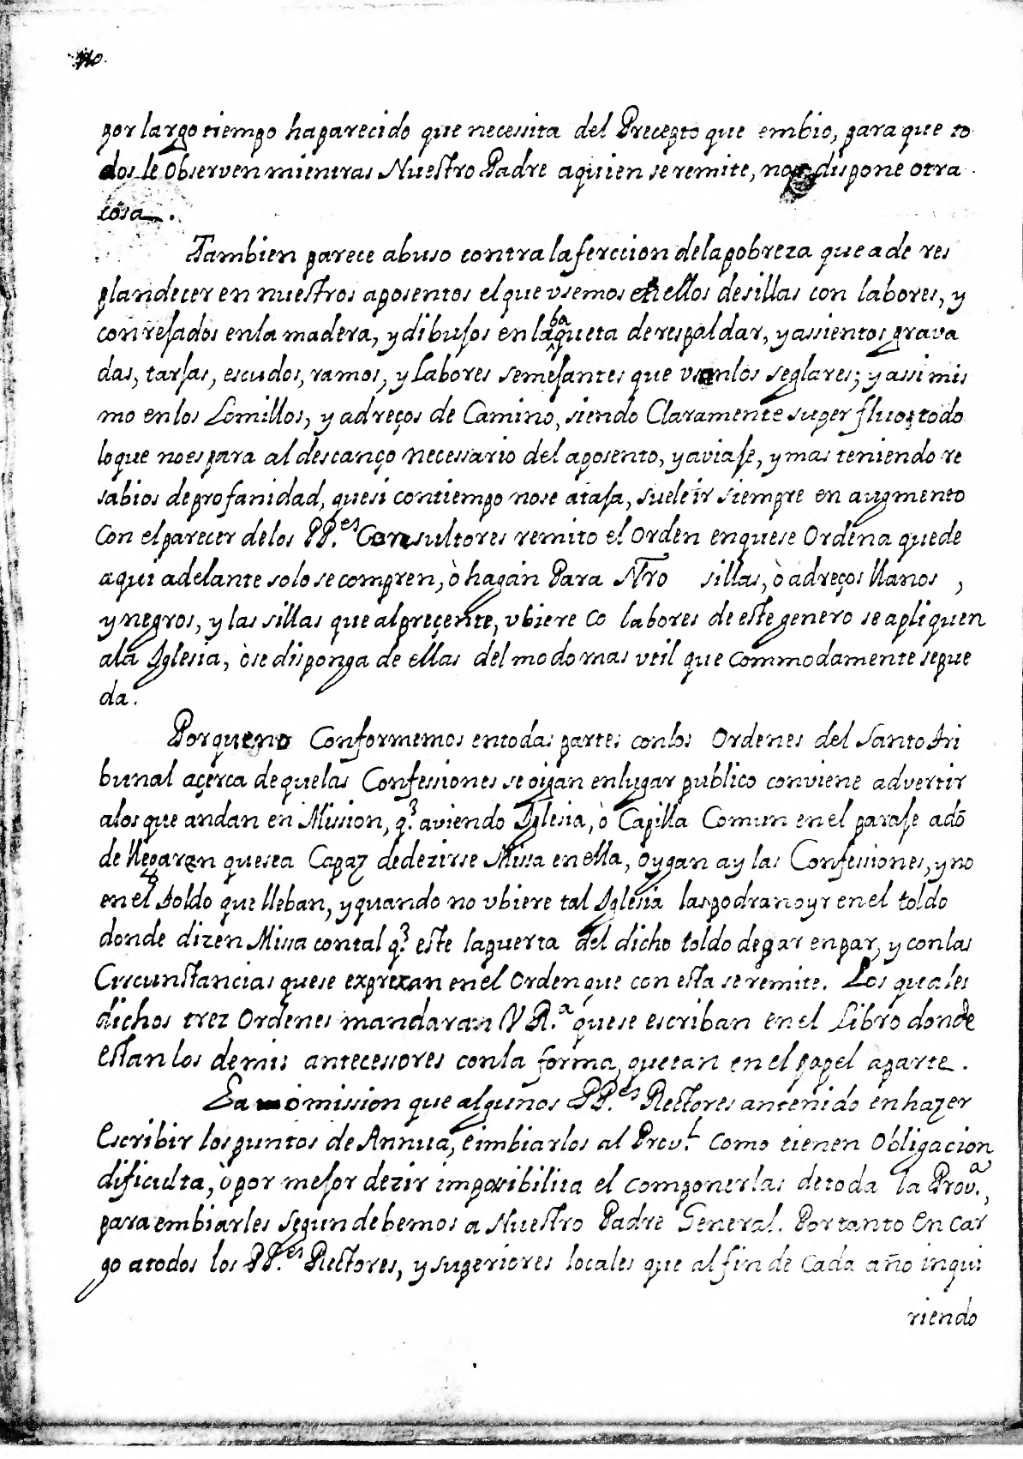 por largo tiempo haparecido que necessita del Precepto que embio, para que to
dos le Observen mientras Nuestro Padre aquien se remite, no dispone otra
cosa.
Tambien parece abuso contra la ferccion dela pobreza que a de res
plandecer en nuestros aposentos el que vsemos en ellos de sillas con labores, y
conrejados enla madera, y dibujos en la baqueta de respaldar, y assientos grava
das, tarjas, escudos, ramos, y Labores semejantes que vsan los seglares; y assi mis
mo en los Lomillos, y adreços de Camino, siendo Claramente superfluo, todo
loque no es para al descanço necessario del aposento, y aviaje, y mas teniendo re
sabios de profanidad, que si contiempo nose ataja, suele ir siempre en augmento
Con el parecer delos PP.es Consultores remito el Orden enquese Ordena quede
aqui adelante solo se compren, ò hagan Para Nro sillas, ò adreços llanos,
y negros, y las sillas que alpreçente, vbiere co labores de este genero se apliquen
ala Iglesia, òse disponga de ellas del modo mas vtil que commodamente se pue
da.
Porque no Conformemos entodas partes conlos Ordenes del Santo Tri
bunal açerca de quelas Confessiones se oigan enlugar publico conviene advertir
alos que andan en Mission, q.e aviendo Iglesia, ò Capilla Comun en el paraje adō
de llegaren quesea Capaz dedezirse Missa en ella, Oygan ay las Confessiones, y no
en el Toldo que lleban, y quando no vbiere tal Iglesia las podran oyr en el toldo
donde dizen Missa contal q.e este la puerta del dicho toldo de par en par, y con las
Circunstancias quese exprezan en el Orden que con esta se remite. Los quales
dichos trez Ordenes mandaran V R.a quese escriban en el Libro donde
estan los demis antecessores conla forma, quetan en el papel aparte.
La omission que algunos PP.es Rectores antenido en hazer
Escribir los puntos de Annua, e imbiarlos al Prov.l Como tienen Obligacion
dificulta, ò por mejor dezir impossibilita el componerlas de toda la Prov.a,
para embiarles segun debemos a Nuestro Padre General. Por tanto Encar
go a todos los PP.es Rectores, y superiores locales que al fin de Cada año inqui
riendo